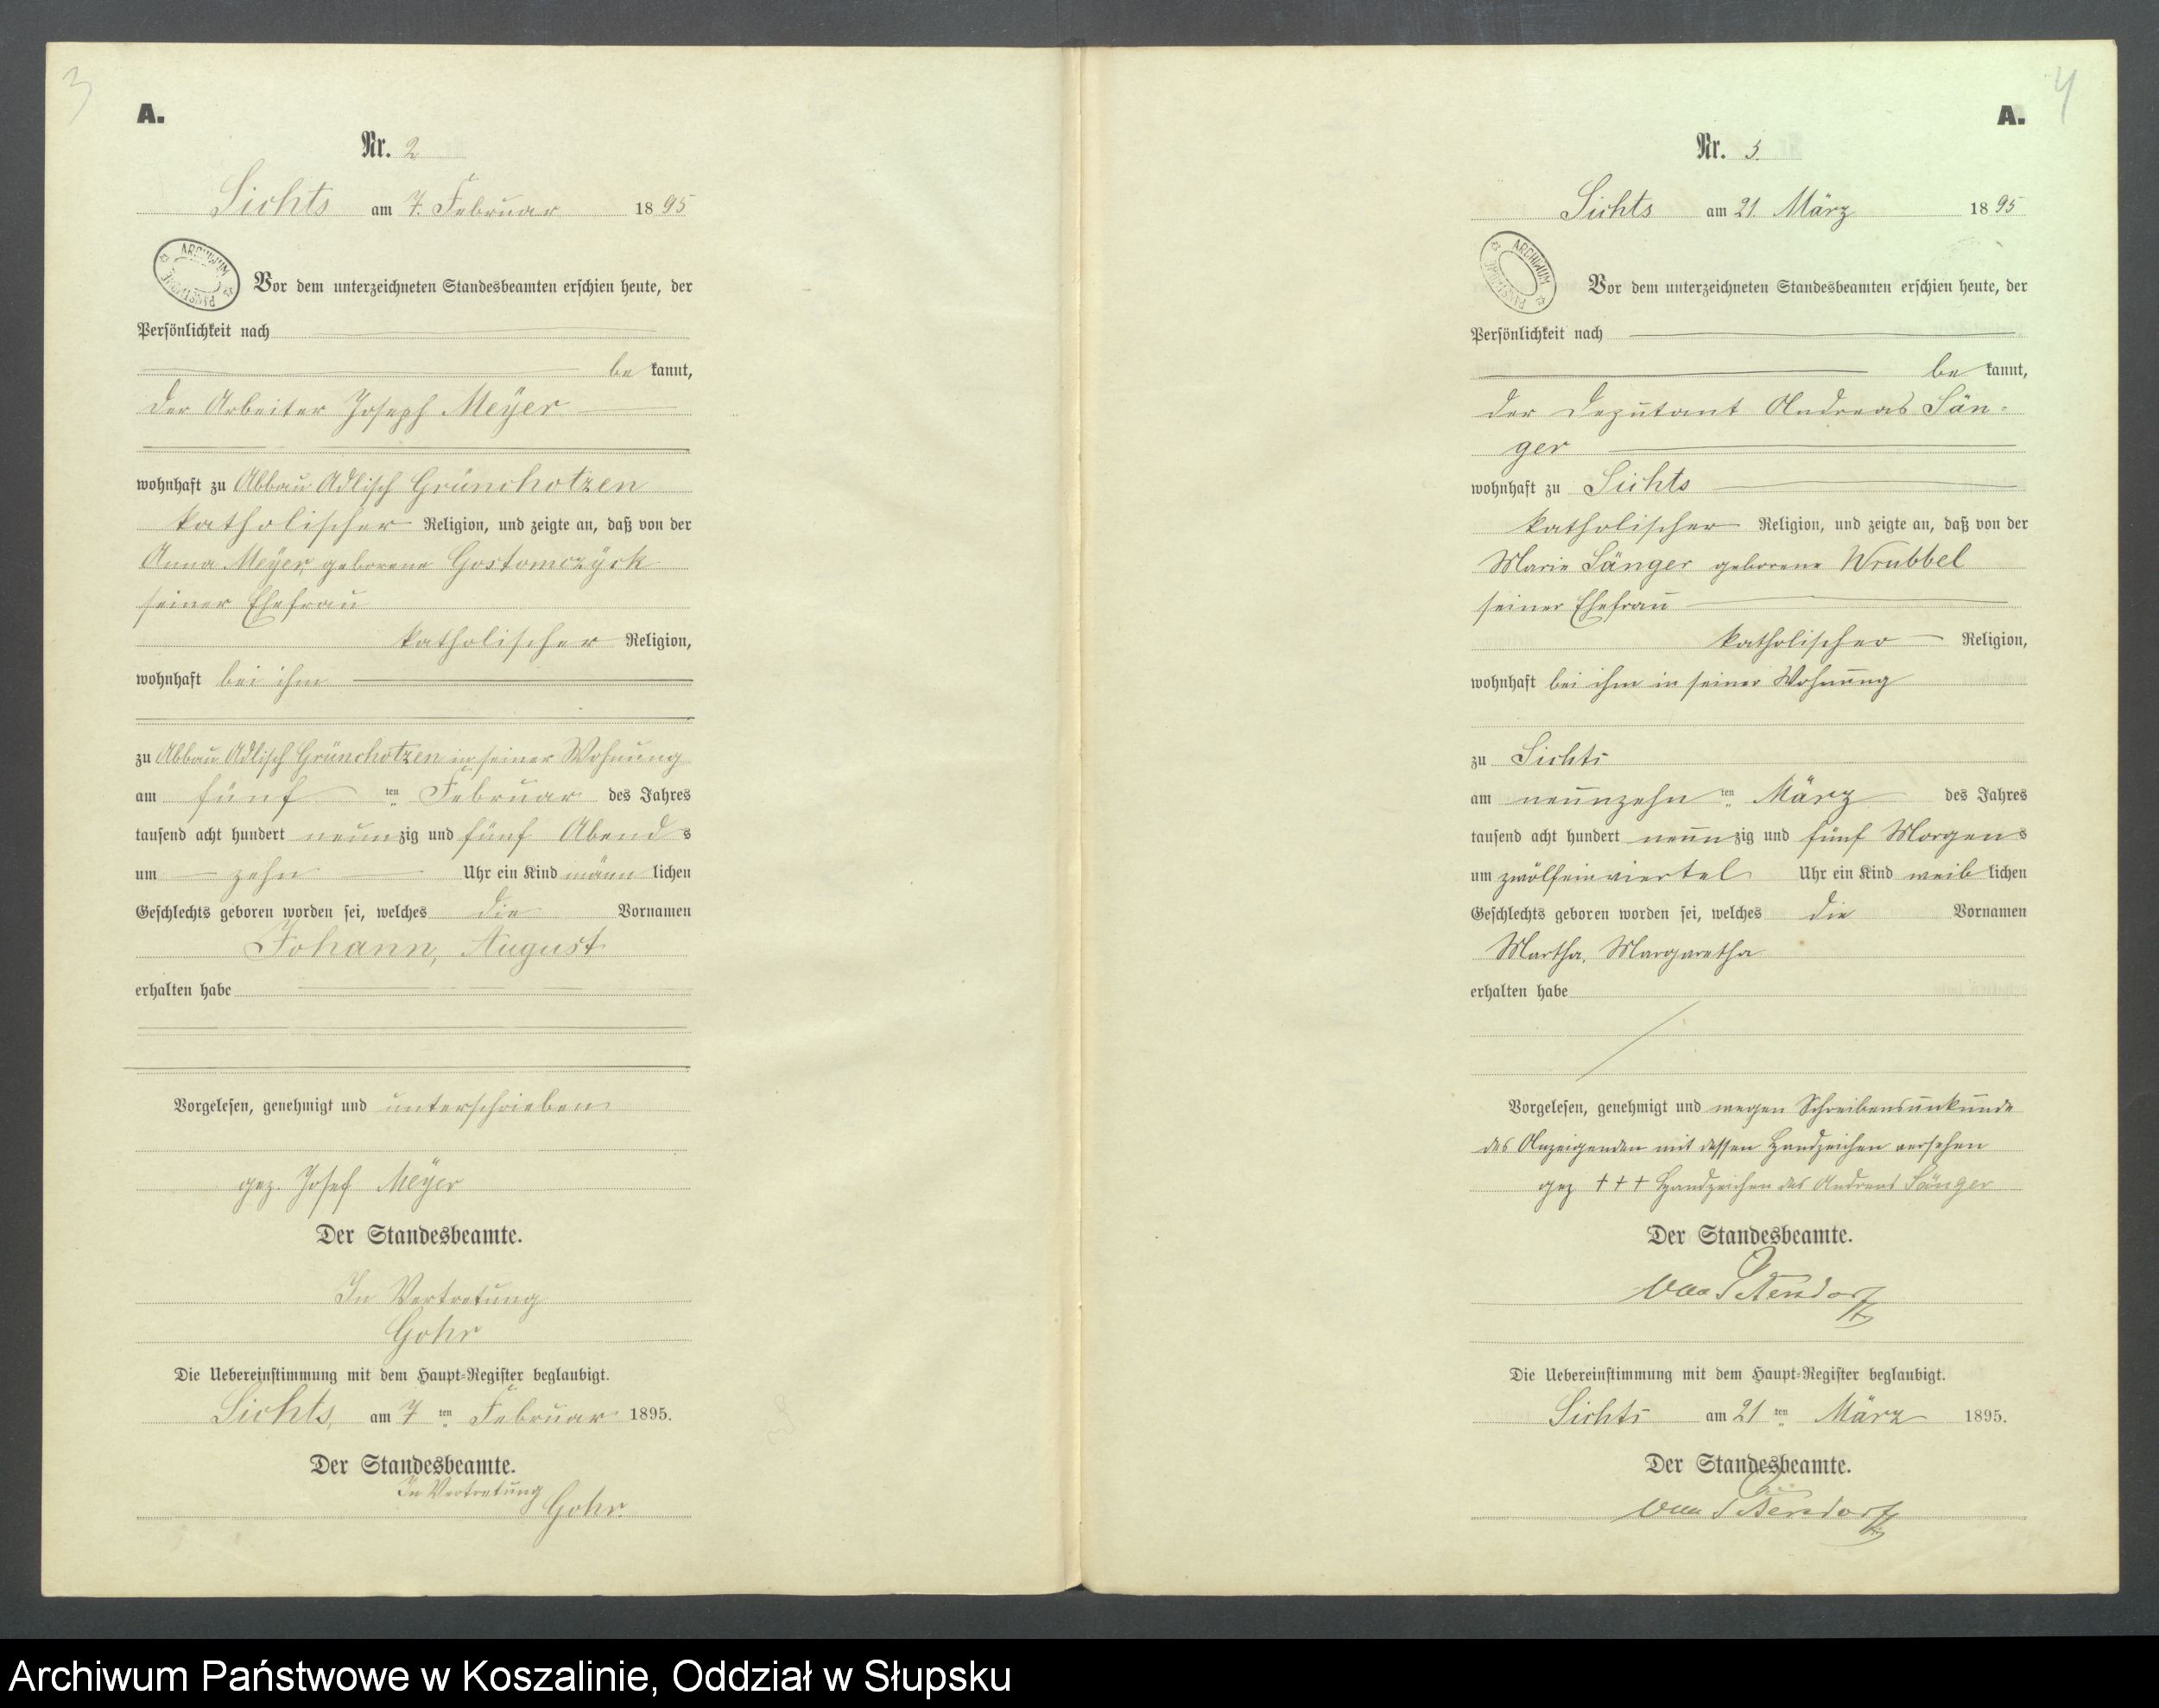 3
A.
Nr. 2
Sichts am 7. Februar 1895
ARCHIWUM PAŃSTWOWE
Vor dem unterzeichneten Standesbeamten erschien heute, der
Persönlichkeit nach
be kannt,
der Arbeiter Joseph Meyer
wohnhaft zu Abbau Adlisch Grünchotzen
katholischer Religion, und zeigte an, daß von der
Anna Meyer, geborene Gostomczyck
seiner Ehefrau
katholischer Religion,
wohnhaft bei ihm
zu Abbau Adlisch Grünchotzen in seiner Wohnung
am fünf ten Februar des Jahres
tausend acht hundert neunzig und fünf Abends
um zehn Uhr ein Kind männlichen
Geschlechts geboren worden sei, welches die Vornamen
Johann, August
erhalten habe
Vorgelesen, genehmigt und unterschrieben
gez. Josef Meyer
Der Standesbeamte.
In Vertretung
Gohr
Die Uebereinstimmung mit dem Haupt-Register beglaubigt.
Sichts, am 7 ten Februar 1895.
Der Standesbeamte.
In Vertretung
Gohr.
4
A.
Nr. 3.
Sichts am 21. März 1895
ARCHIWUM PAŃSTWOWE
Vor dem unterzeichneten Standesbeamten erschien heute, der
Persönlichkeit nach
be kannt,
der Deputant Andreas Sän-
ger
wohnhaft zu Sichts
katholischer Religion, und zeigte an, daß von der
Marie Sänger geborene Wrubbel
seiner Ehefrau
katholischer Religion,
wohnhaft bei ihm in seiner Wohnung
zu Sichts
am neunzehn ten März des Jahres
tausend acht hundert neunzig und fünf Morgens
um zwölfeinviertel Uhr ein Kind weiblichen
Geschlechts geboren worden sei, welches die Vornamen
Martha, Margaretha
erhalten habe
Vorgelesen, genehmigt und wegen Schreibensunkunde
des Anzeigenden mit dessen Handzeichen versehen
gez +++ Handzeichen des Andreas Sänger
Der Standesbeamte.
Die Uebereinstimmung mit dem Haupt-Register beglaubigt.
Sichts am 21 ten März 1895.
Der Standesbeamte.
Archiwum Państwowe w Koszalinie, Oddział w Słupsku